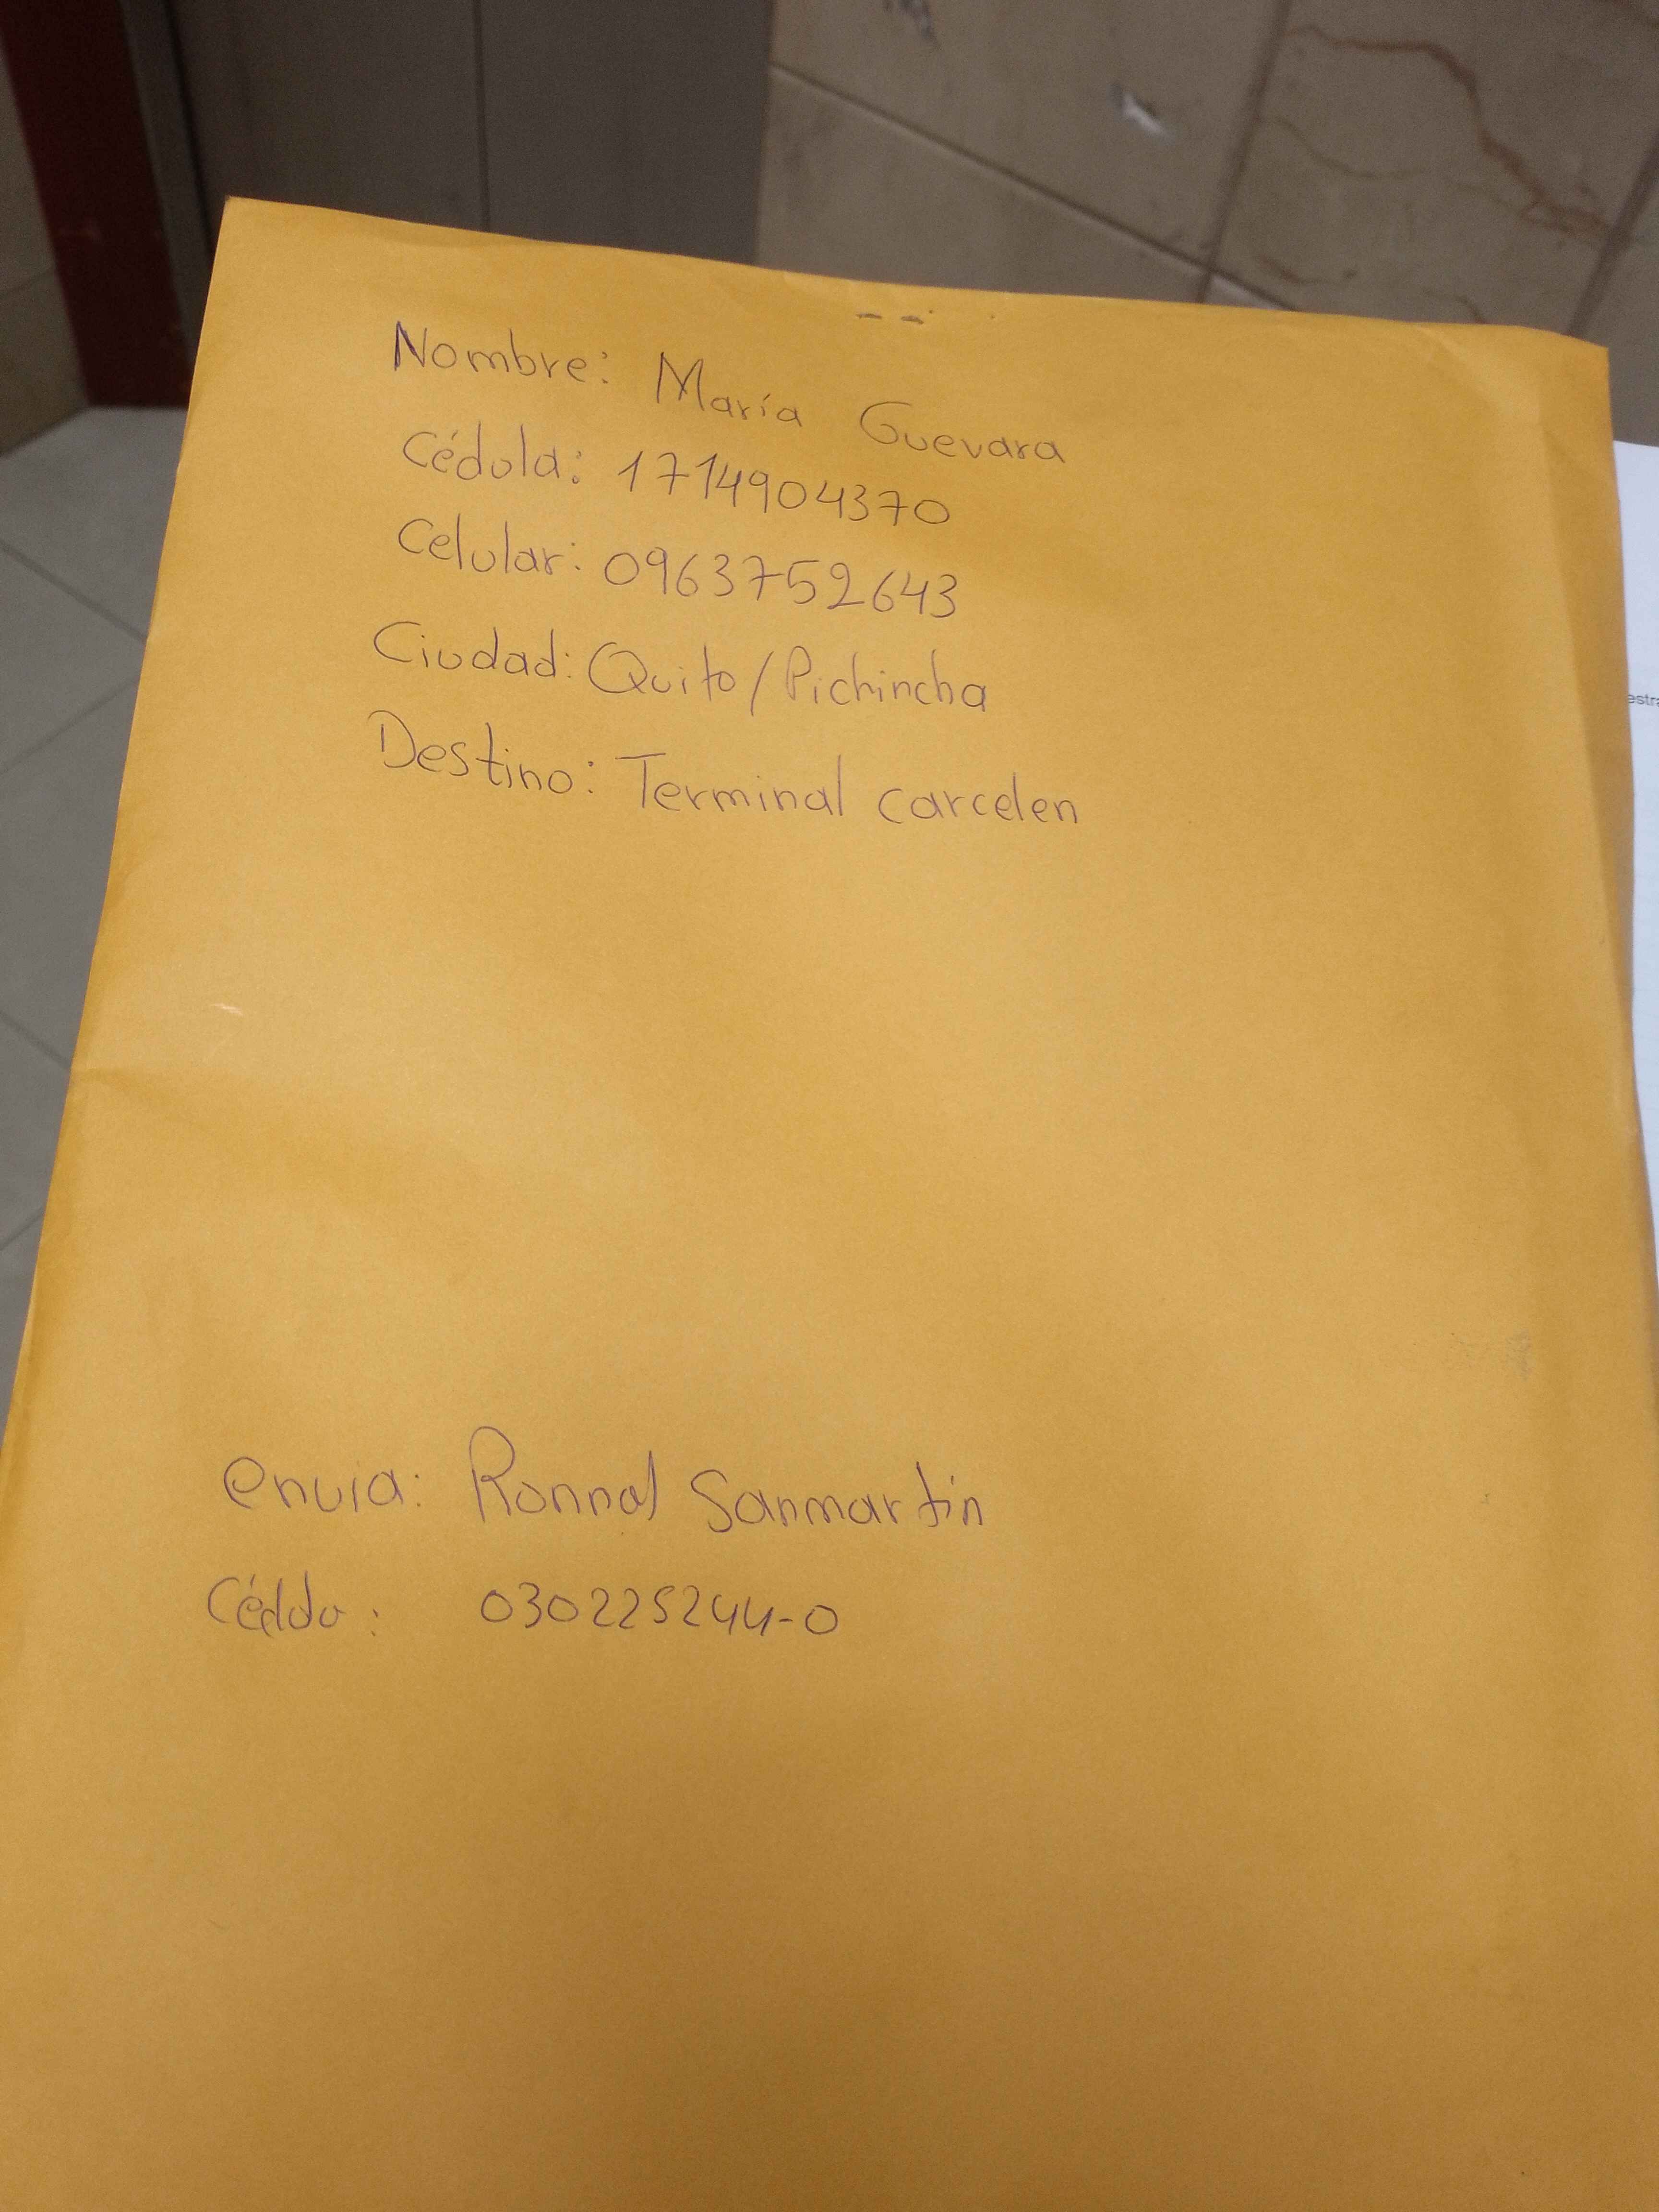 Nombre: María Guevara
Cédula: 1714904370
Celular: 0963752643
Ciudad: Quito/Pichincha
Destino: Terminal carcelen
envia: Ronnal Sanmartin
030225244-0